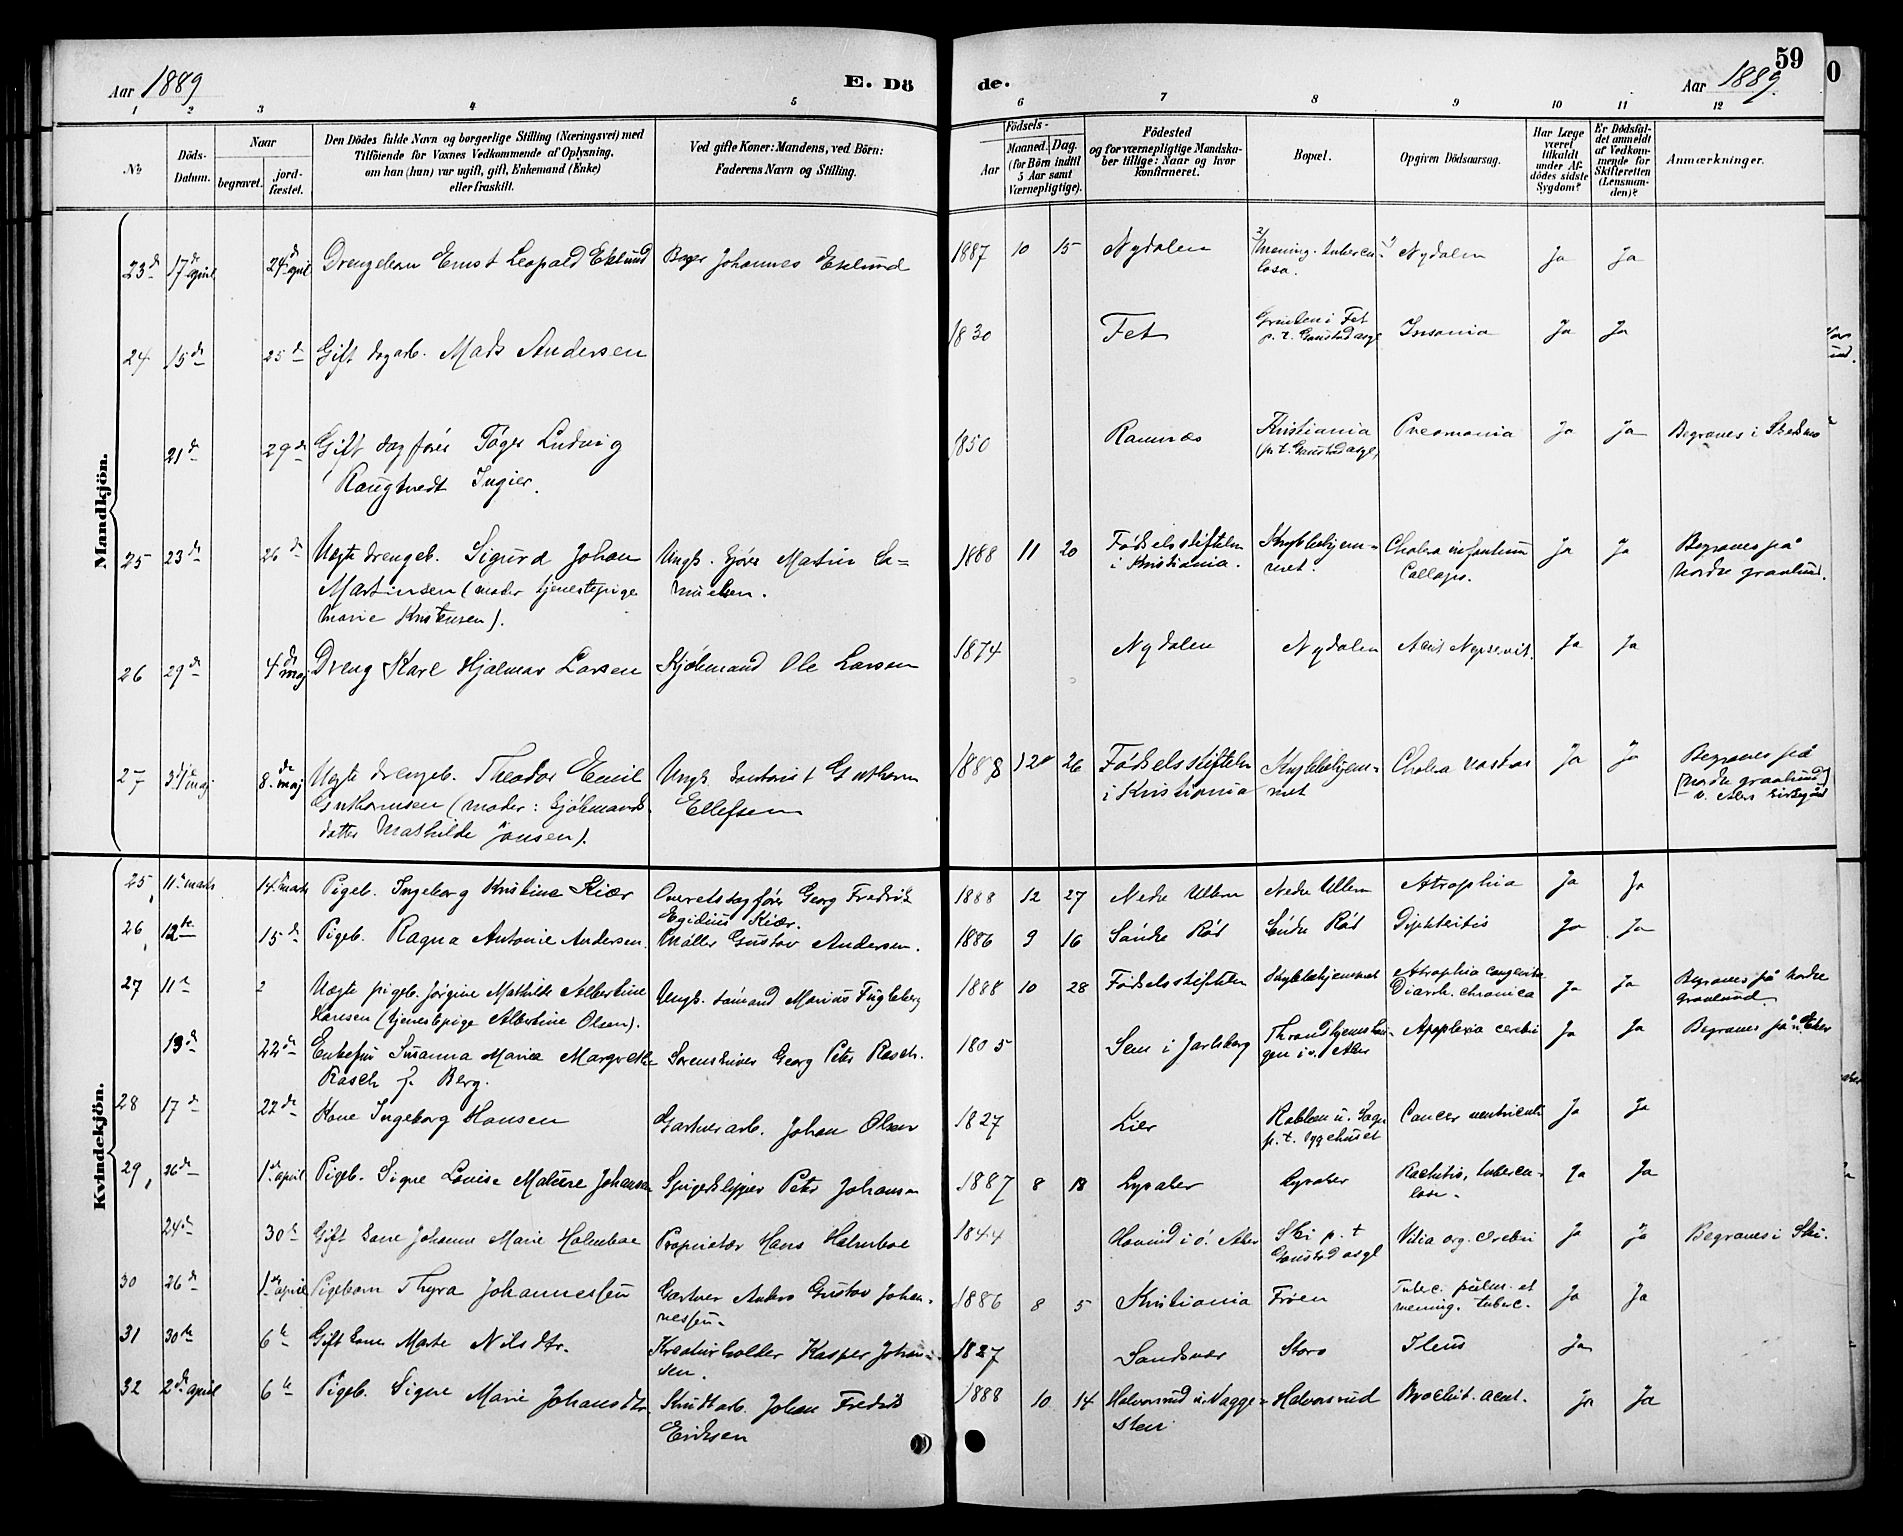 Aar 1889
E. Dö
de.
Aar 1889.
59
1 2 3 4 5 6 7 8 9 10 11 12
No
Döds-Datum.
Naar
begravet.
jord-fæstet.
Den Dödes fulde Navn og borgerlige Stilling (Næringsvei) med
Tilföiende for Voxnes Vedkommende af Oplysning,
om han (hun) var ugift, gift, Enkemand (Enke)
eller fraskilt.
Ved gifte Koner: Mandens, ved Börn:
Faderens Navn og Stilling.
Födsels-
Aar
Maaned. Dag.
(for Börn indtil
5 Aar samt
Værnepligtige).
Födested
og for værnepligtige Mandska-
ber tillige: Naar og hvor
konfirmeret.
Bopæl.
Opgiven Dödsaarsag.
Har Læge
været
tilkaldt
under Af-
dödes sidste
Sygdom?
Er Dödsfal-
det anmeldt
af Vedkom-
mende for
Skifteretten
(Lensman-
den)?
Anmærkninger.
Mandkjön.
23 17de april 24de april Drengebarn Ernst Leopold Eklund Bager Johannes Eklund 1887 10 15 Nydalen Mening. tubercu-
losa. Nydalen Ja Ja
24 15de 25de Gift dagarb. Mads Andersen 1830 Fet i Fet
p. t. Gaustad asyl Insania Ja Ja
21de 29de Gift Tøger Ludvig
Raugtvedt Ingier. 1850 Ramnæs Kristiania
(p. t. Gaustad asyl) Pneomonia Ja Ja Begraves i Skedsmo
25 23de 26de Uægte drengeb. Sigurd Johan
Martinsen (moder tjenestepige
Marie Kristensen). Ungk. Kjører Martin Sa-
muelsen. 1888 11 20 Fødselsstiftelsen
i Kristiania. Krybbehjem-
met. Cholera infantum
Collaps. Ja Ja Begraves på
Nordre gravlund.
26 29de 4de maj Dreng Karl Hjalmar Larsen Kjøbmand Ole Larsen 1874 Nydalen Nydalen Acut Ja Ja
27 3de maj 8de maj Uægte drengeb. Theodor Emil
Guthormsen (moder: Gjøbmands-
datter Mathilde Jonsen). Ungk. Guthorm
Ellefsen 1888 12 26 Fødselsstiftelsen
i Kristiania Krybbehjem-
met Cholera nostras Ja Ja Begraves på
(Nordre gravlund)
v. Akers kirkegård
Kvindekjön.
25 11te marts 14de marts Pigeb. Ingeborg Kristine Kiær Overretssagfører Georg Fredrik
Egidius Kiær. 1888 12 27 Nedre Ullern Nedre Ullern Atrophia Ja Ja
26 12te 15de Pigeb. Ragna Antonie Andersen. Møller Gustav Andersen. 1886 9 16 Søndre Rød Søndre Rød Diphteritis Ja Ja
27 11te 2 Uægte pigeb. Jørgine Mathilde Albertine
Hansen (tjenestepige Albertine Olsen). Ungk. sømand Marius Fugleberg 1888 10 28 Fødselsstiftelsen Krybbehjemmet Atrophia congenita
Diarrh. chronica Ja Ja Begraves på Nordre
gravlund
13de 22de Enkefru Susanna Marie Margrethe
Rasch f. Berg. Sorenskriver Georg Peter Rasch. 1805 Sem i Jarlsberg i v. Aker Apoplexia cerebri Ja Ja Begraves på v. Aker
28 17de 22de Kone Ingeborg Hansen Gartnerarb. Johan Olsen 1827 Lier
p. t. sygehuset Cancer ventriculi Ja Ja
29 26de 1de april Pigeb. Signe Lovise Johansen Spigerklipper Peter Johansen 1887 8 18 Lysaker Lysaker Rachitis, tubercu-
lose. Ja Ja
24de 30de Gift kone Johanne Marie Holmboe Proprietær Hans Holmboe 1844 Hovind i ø. Aker Ski p. t.
Gaustad asyl Vitia org. cerebri Ja Ja Begraves i Ski.
30 26de 1de april Pigebarn Thyra Johannessen Gartner Anders Gustav Johan-
nessen. 1886 8 5 Kristiania Frøen Tuberc. pulm. et
mening. tuberc. Ja Ja
31 30te 6te Gift kone Marte Nilsdtr. Kreaturholder Kasper Johan-
sen. 1827 Sandsvær Storo Ileus Ja
32 2de april 6te Pigeb. Signe Marie Johansdtr. Krudtarb. Johan Fredrik
Eriksen 1888 10 14 Halvorsrud u. Nagge-
sten Halvorsrud Bronchit. acut. Ja Ja